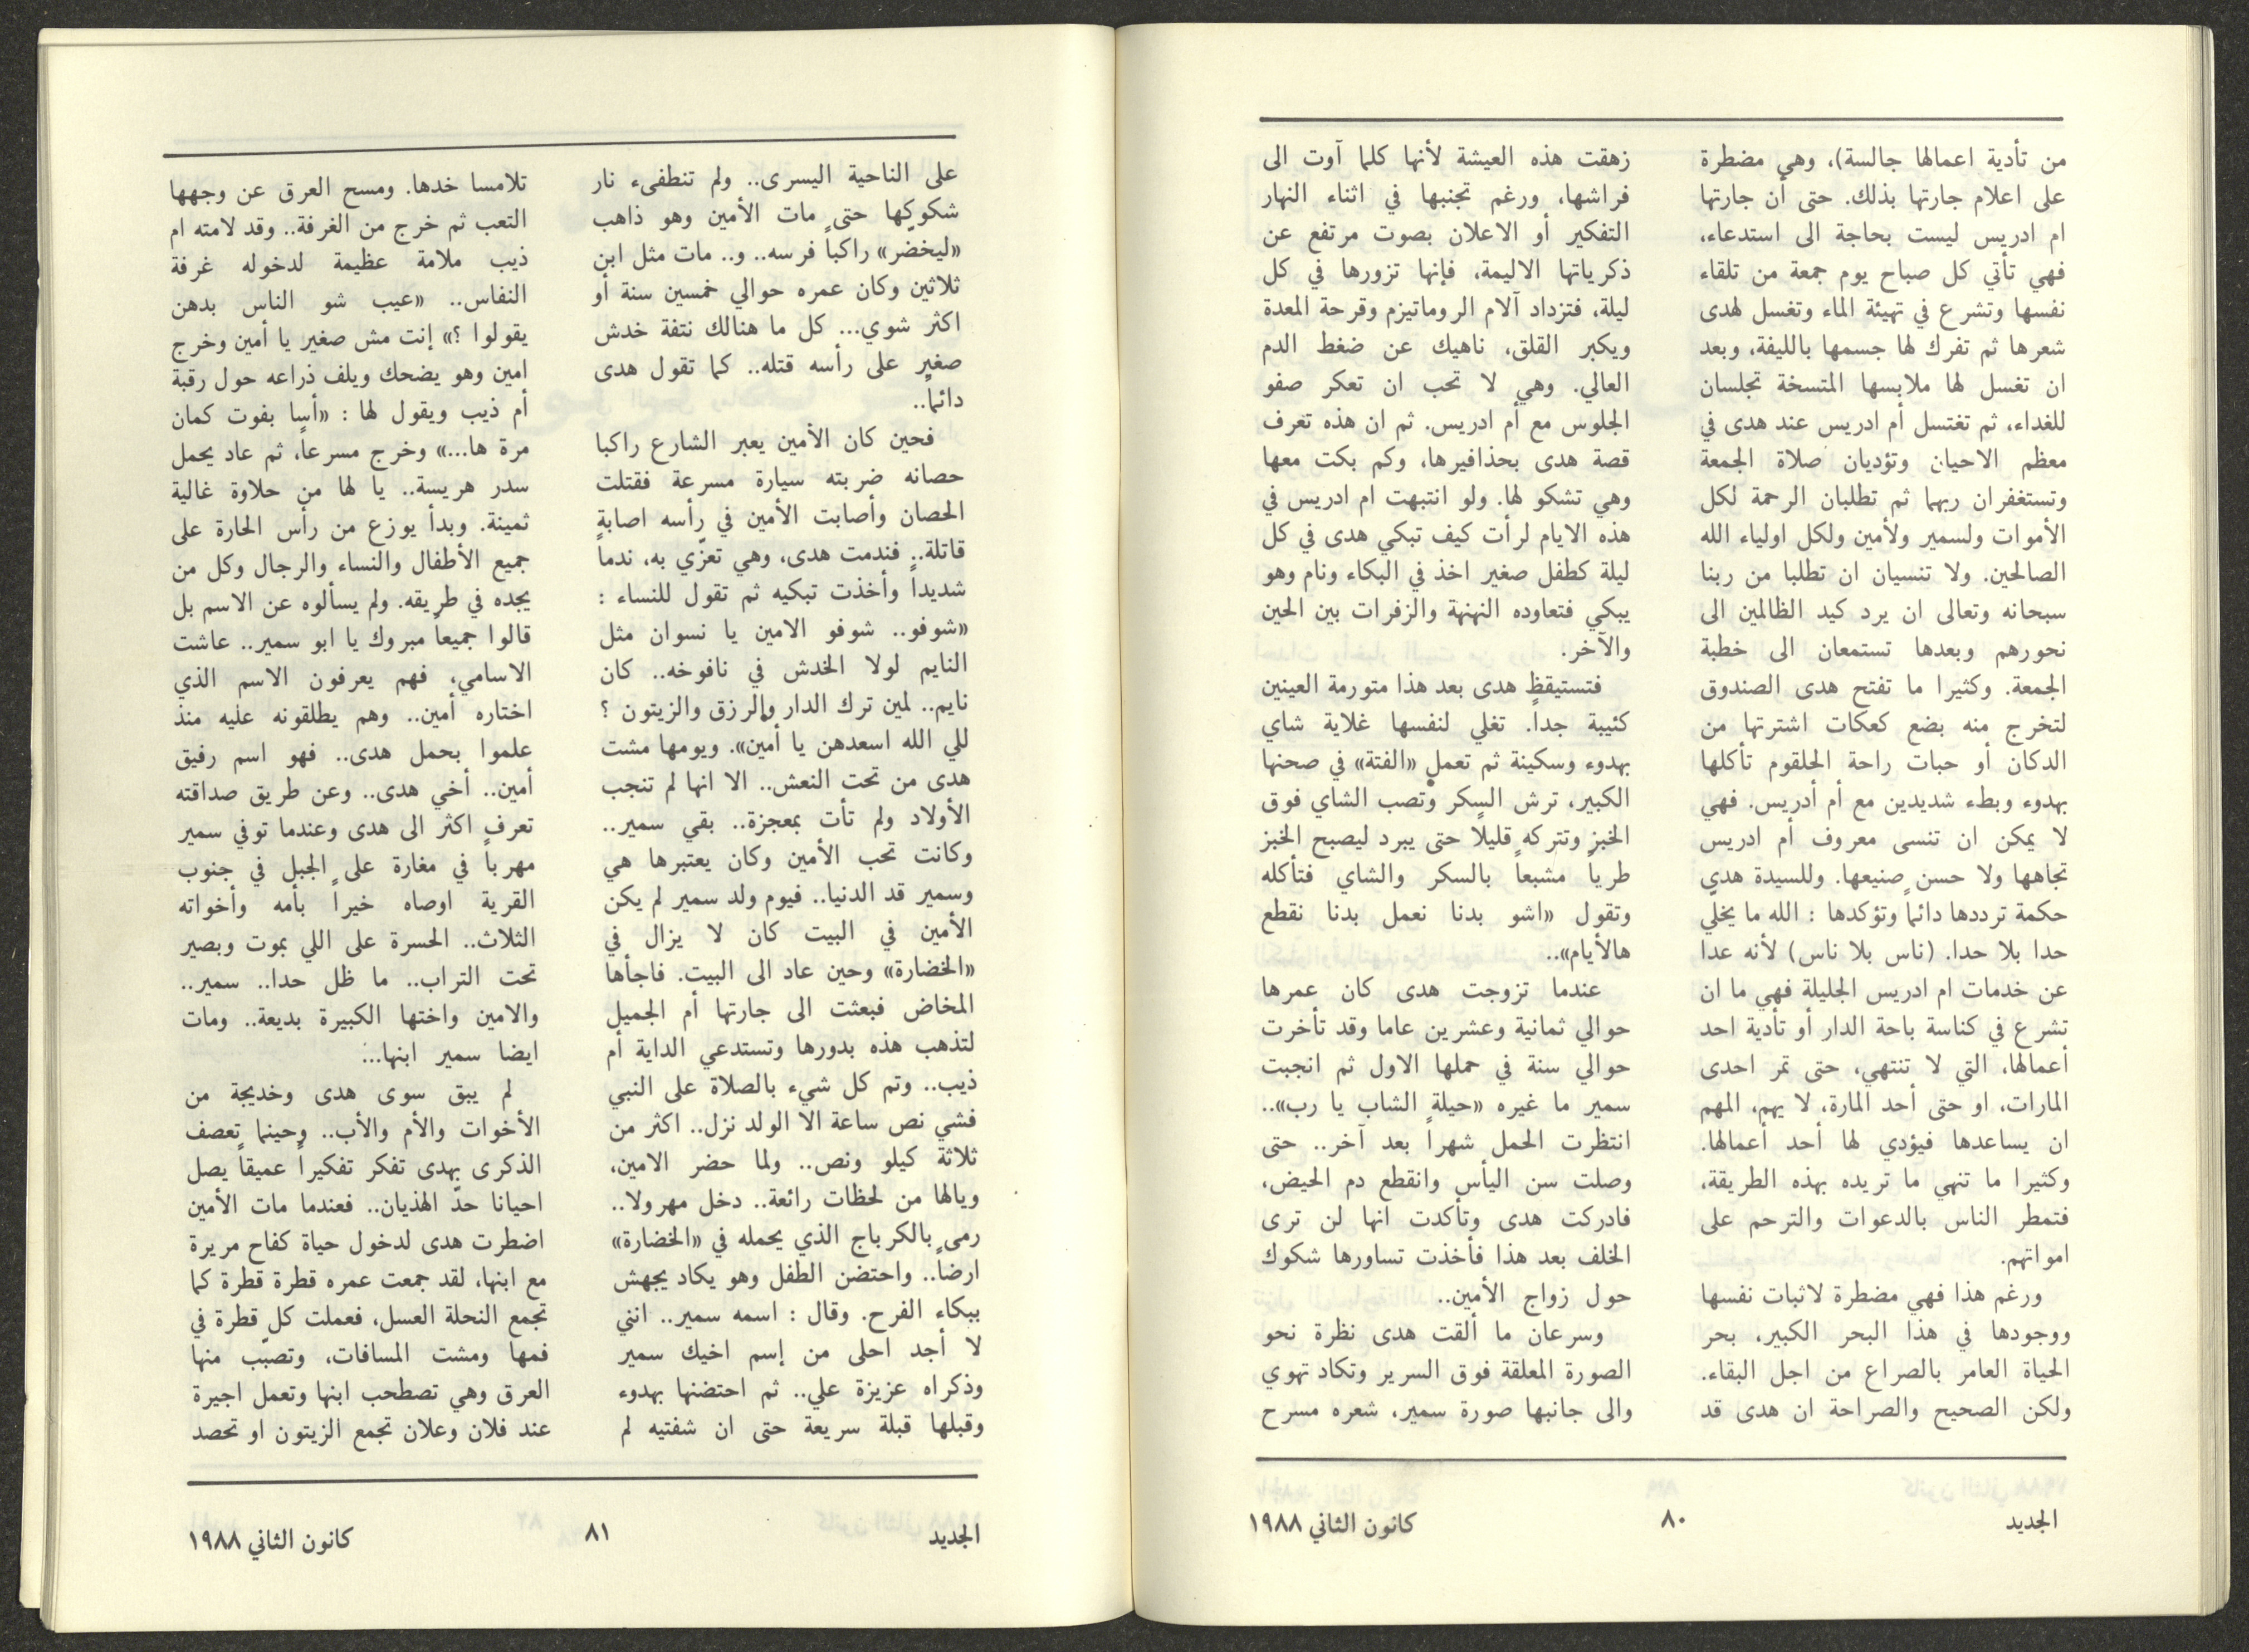 من تأدية اعمالها جالسة)، وهي مضطرة
على اعلام جارتها بذلك. حتى أن جارتها
ام ادريس ليست بحاجة الى استدعاء،
فهي تأتي كل صباح يوم جمعة من تلقاء
نفسها وتشرع في تهيئة الماء وتغسل لهدى
شعرها ثم تفرك لها جسمها بالليفة، وبعد
ان تغسل لها ملابسها المتسخة تجلسان
للغداء، ثم تغتسل أم ادريس عند هدى في
معظم الاحيان وتؤديان صلاة الجمعة
وتستغفران ربهما ثم تطلبان الرحمة لكل
الأموات ولسمير ولأمين ولكل اولياء الله
الصالحين. ولا تنسيان ان تطلبا من ربنا
سبحانه وتعالى ان يرد كيد الظالمين الى
نحورهم وبعدها تستمعان الى خطبة
الجمعة. وكثيرا ما تفتح هدى الصندوق
لتخرج منه بضع كعكات اشترتها من
الدكان أو حبات راحة الحلقوم تأكلها
بهدوء وبطء شديدين مع أم أدريس. فهي
لا يمكن ان تنسى معروف أم ادريس
تجاهها ولا حسن صنيعها. وللسيدة هدى
حكمة ترددها دائماً وتؤكدها : الله ما يخلّي
حدا بلا حدا. (ناس بلا ناس) لأنه عدا
عن خدمات ام ادريس الجليلة فهي ما ان
تشرع في كناسة باحة الدار أو تأدية احد
أعمالها، التي لا تنتهي، حتى تمر احدى
المارات، او حتى أحد المارة، لا يهم، المهم
ان يساعدها فيؤدي لها أحد أعمالها.
وكثيرا ما تنهي ما تريده بهذه الطريقة،
فتمطر الناس بالدعوات والترحم على
امواتهم.
ورغم هذا فهي مضطرة لاثبات نفسها
ووجودها في هذا البحر الكبير، بحر
الحياة العامر بالصراع من اجل البقاء.
ولكن الصحيح والصراحة ان هدى قد
زهقت هذه العيشة لأنها كلما آوت الى
فراشها، ورغم تجنبها في اثناء النهار
التفكير أو الاعلان بصوت مرتفع عن
ذكرياتها الاليمة، فإنها تزورها في كل
ليلة، فتزداد آلام الروماتيزم وقرحة المعدة
ويكبر القلق، ناهيك عن ضغط الدم
العالي. وهي لا تحب ان تعكر صفو
الجلوس مع أم ادريس. ثم ان هذه تعرف
قصة هدى بحذافيرها، وكم بكت معها
وهي تشكو لها. ولو انتبهت ام ادريس في
هذه الايام لرأت كيف تبكي هدى في كل
ليلة كطفل صغير اخذ في البكاء ونام وهو
يبكي فتعاوده النهنهة والزفرات بين الحين
والآخر.
فتستيقظ هدى بعد هذا متورمة العينين
كئيبة جداً. تغلي لنفسها غلاية شاي
بهدوء وسكينة ثم تعمل «الفتة» في صحنها
الكبير، ترش السكر وتصب الشاي فوق
الخبز وتتركه قليلاً حتى يبرد ليصبح الخبز
طرياً مشبعاً بالسكر والشاي فتأكله
وتقول «اشو بدنا نعمل بدنا نقطع
هالأيام»..
عندما تزوجت هدى كان عمرها
حوالي ثمانية وعشرين عاما وقد تأخرت
حوالي سنة في حملها الاول ثم انجبت
سمير ما غيره «حيلة الشاب يا رب»..
انتظرت الحمل شهراً بعد آخر.. حتى
وصلت سن اليأس وانقطع دم الحيض،
فادركت هدى وتأكدت انها لن ترى
الخلف بعد هذا فأخذت تساورها شكوك
حول زواج الأمين..
وسرعان ما ألقت هدى نظرة نحو
الصورة المعلقة فوق السرير وتكاد تهوي
والى جانبها صورة سمير، شعره مسرح
الجديد
٨٠
كانون الثاني ١٩٨٨
على الناحية اليسرى.. ولم تنطفىء نار
شكوكها حتى مات الأمين وهو ذاهب
«ليخضّر» راكباً فرسه.. و.. مات مثل ابن
ثلاثين وكان عمره حوالي خمسين سنة أو
اكثر شوي... كل ما هنالك نتفة خدش
صغير على رأسه قتله.. كما تقول هدى
دائماً..
فحين كان الأمين يعبر الشارع راكبا
حصانه ضربته سيارة مسرعة فقتلت
الحصان وأصابت الأمين في رأسه اصابة
قاتلة.. فندمت هدى، وهي تعزّي به، ندماً
شديداً وأخذت تبكيه ثم تقول للنساء :
«شوفو.. شوفو الامين يا نسوان مثل
النايم لولا الخدش في نافوخه.. كان
نايم.. لمين ترك الدار والرزق والزيتون ؟
للي الله اسعدهن يا أمين». ويومها مشت
هدى من تحت النعش.. الا انها لم تنجب
الأولاد ولم تأت بمعجزة.. بقي سمير..
وكانت تحب الأمين وكان يعتبرها هي
وسمير قد الدنيا.. فيوم ولد سمير لم يكن
الأمين في البيت كان لا يزال في
«الخضارة» وحين عاد الى البيت. فاجأها
المخاض فبعثت الى جارتها أم الجميل
لتذهب هذه بدورها وتستدعي الداية أم
ذيب.. وتم كل شيء بالصلاة على النبي
فشي نص ساعة الا الولد نزل.. اكثر من
ثلاثة كيلو ونص.. ولما حضر الامين،
ويالها من لحظات رائعة.. دخل مهرولا..
رمى بالكرباج الذي يحمله في «الخضارة»
ارضاً.. واحتضن الطفل وهو يكاد يجهش
ببكاء الفرح. وقال : اسمه سمير.. انني
لا أجد احلى من إسم اخيك سمير
وذكراه عزيزة علي.. ثم احتضنها بهدوء
وقبلها قبلة سريعة حتى ان شفتيه لم
تلامسا خدها. ومسح العرق عن وجهها
التعب ثم خرج من الغرفة.. وقد لامته ام
ذيب ملامة عظيمة لدخوله غرفة
النفاس.. «عيب شو الناس بدهن
يقولوا ؟» إنت مش صغير يا أمين وخرج
امين وهو يضحك ويلف ذراعه حول رقبة
أم ذيب ويقول لها : «أسا بفوت كمان
مرة ها...» وخرج مسرعاً، ثم عاد يحمل
سدر هريسة.. يا لها من حلاوة غالية
ثمينة. وبدأ يوزع من رأس الحارة على
جميع الأطفال والنساء والرجال وكل من
يجده في طريقه. ولم يسألوه عن الاسم بل
قالوا جميعاً مبروك يا ابو سمير.. عاشت
الاسامي، فهم يعرفون الاسم الذي
اختاره أمين.. وهم يطلقونه عليه منذ
علموا بحمل هدى.. فهو اسم رفيق
أمين.. أخي هدى.. وعن طريق صداقته
تعرف اكثر الى هدى وعندما توفي سمير
مهرباً في مغارة على الجبل في جنوب
القرية اوصاه خيراً بأمه وأخواته
الثلاث.. الحسرة على اللي بموت وبصير
تحت التراب.. ما ظل حدا.. سمير..
والامين واختها الكبيرة بديعة.. ومات
ايضا سمير ابنها...
لم يبق سوى هدى وخديجة من
الأخوات والأم والأب.. وحينما تعصف
الذكرى بهدى تفكر تفكيراً عميقاً يصل
احيانا حدّ الهذيان.. فعندما مات الأمين
اضطرت هدى لدخول حياة كفاح مريرة
مع ابنها، لقد جمعت عمره قطرة قطرة كما
تجمع النحلة العسل، فعملت كلّ قطرة في
فمها ومشت المسافات، وتصبّب منها
العرق وهي تصطحب ابنها وتعمل اجيرة
عند فلان وعلان تجمع الزيتون او تحصد
الجديد
٨١
كانون الثاني ١٩٨٨